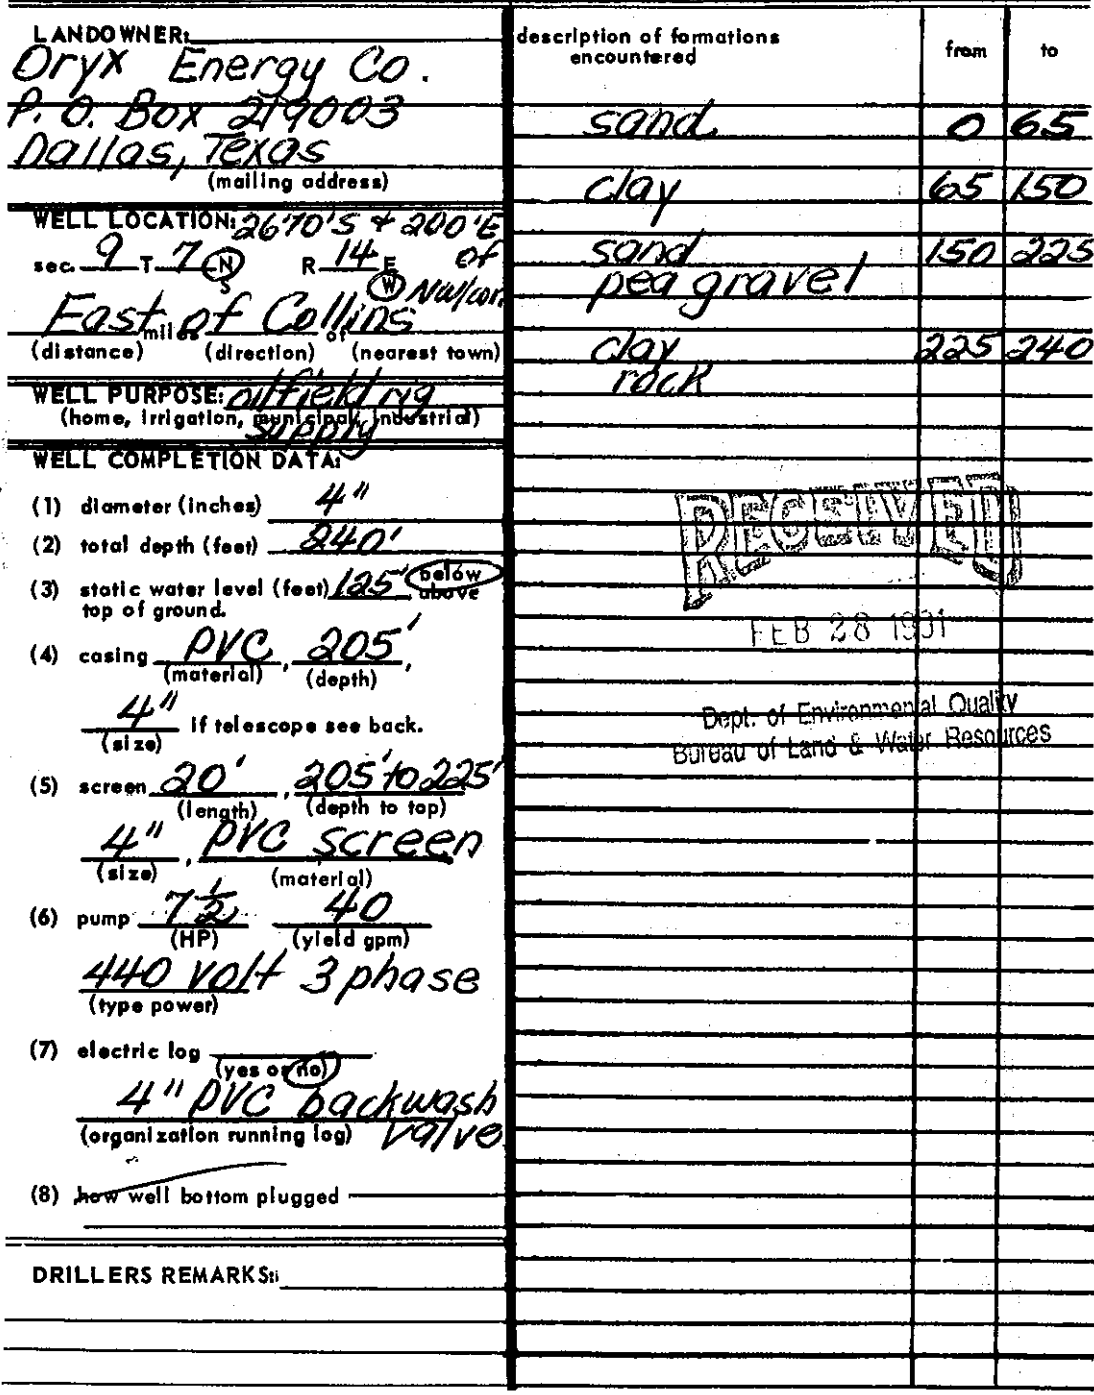 LANDOWNER:
Oryx Energy Co.
P. O. Box 219003
Dallas, Texas
(mailing address)
WELL LOCATION: 2670'S & 200'E
sec. 9 T. 7 N S R. 14 E W of
NW/cor.
East of Collins
miles of
(distance) (direction) (nearest town)
WELL PURPOSE: oilfield rig
(home, irrigation, municipal, industrial)
supply
WELL COMPLETION DATA:
(1) diameter (inches) 4"
(2) total depth (feet) 240'
(3) static water level (feet) 125' below
above
top of ground.
(4) casing PVC, 205',
(material) (depth)
4" if telescope see back.
(size)
(5) screen 20', 205' to 225'
(length) (depth to top)
4", PVC screen
(size) (material)
(6) pump 7 1/2 40
(HP) (yield gpm)
440 volt 3 phase
(type power)
(7) electric log
(yes or no)
4" PVC backwash
(organization running log) valve
(8) how well bottom plugged
DRILLERS REMARKS:
description of formations from to
encountered
sand 0 65
clay 65 150
sand 150 225
pea gravel
clay 225 240
rock
RECEIVED
FEB 28 1991
Dept. of Environmental Quality
Bureau of Land & Water Resources